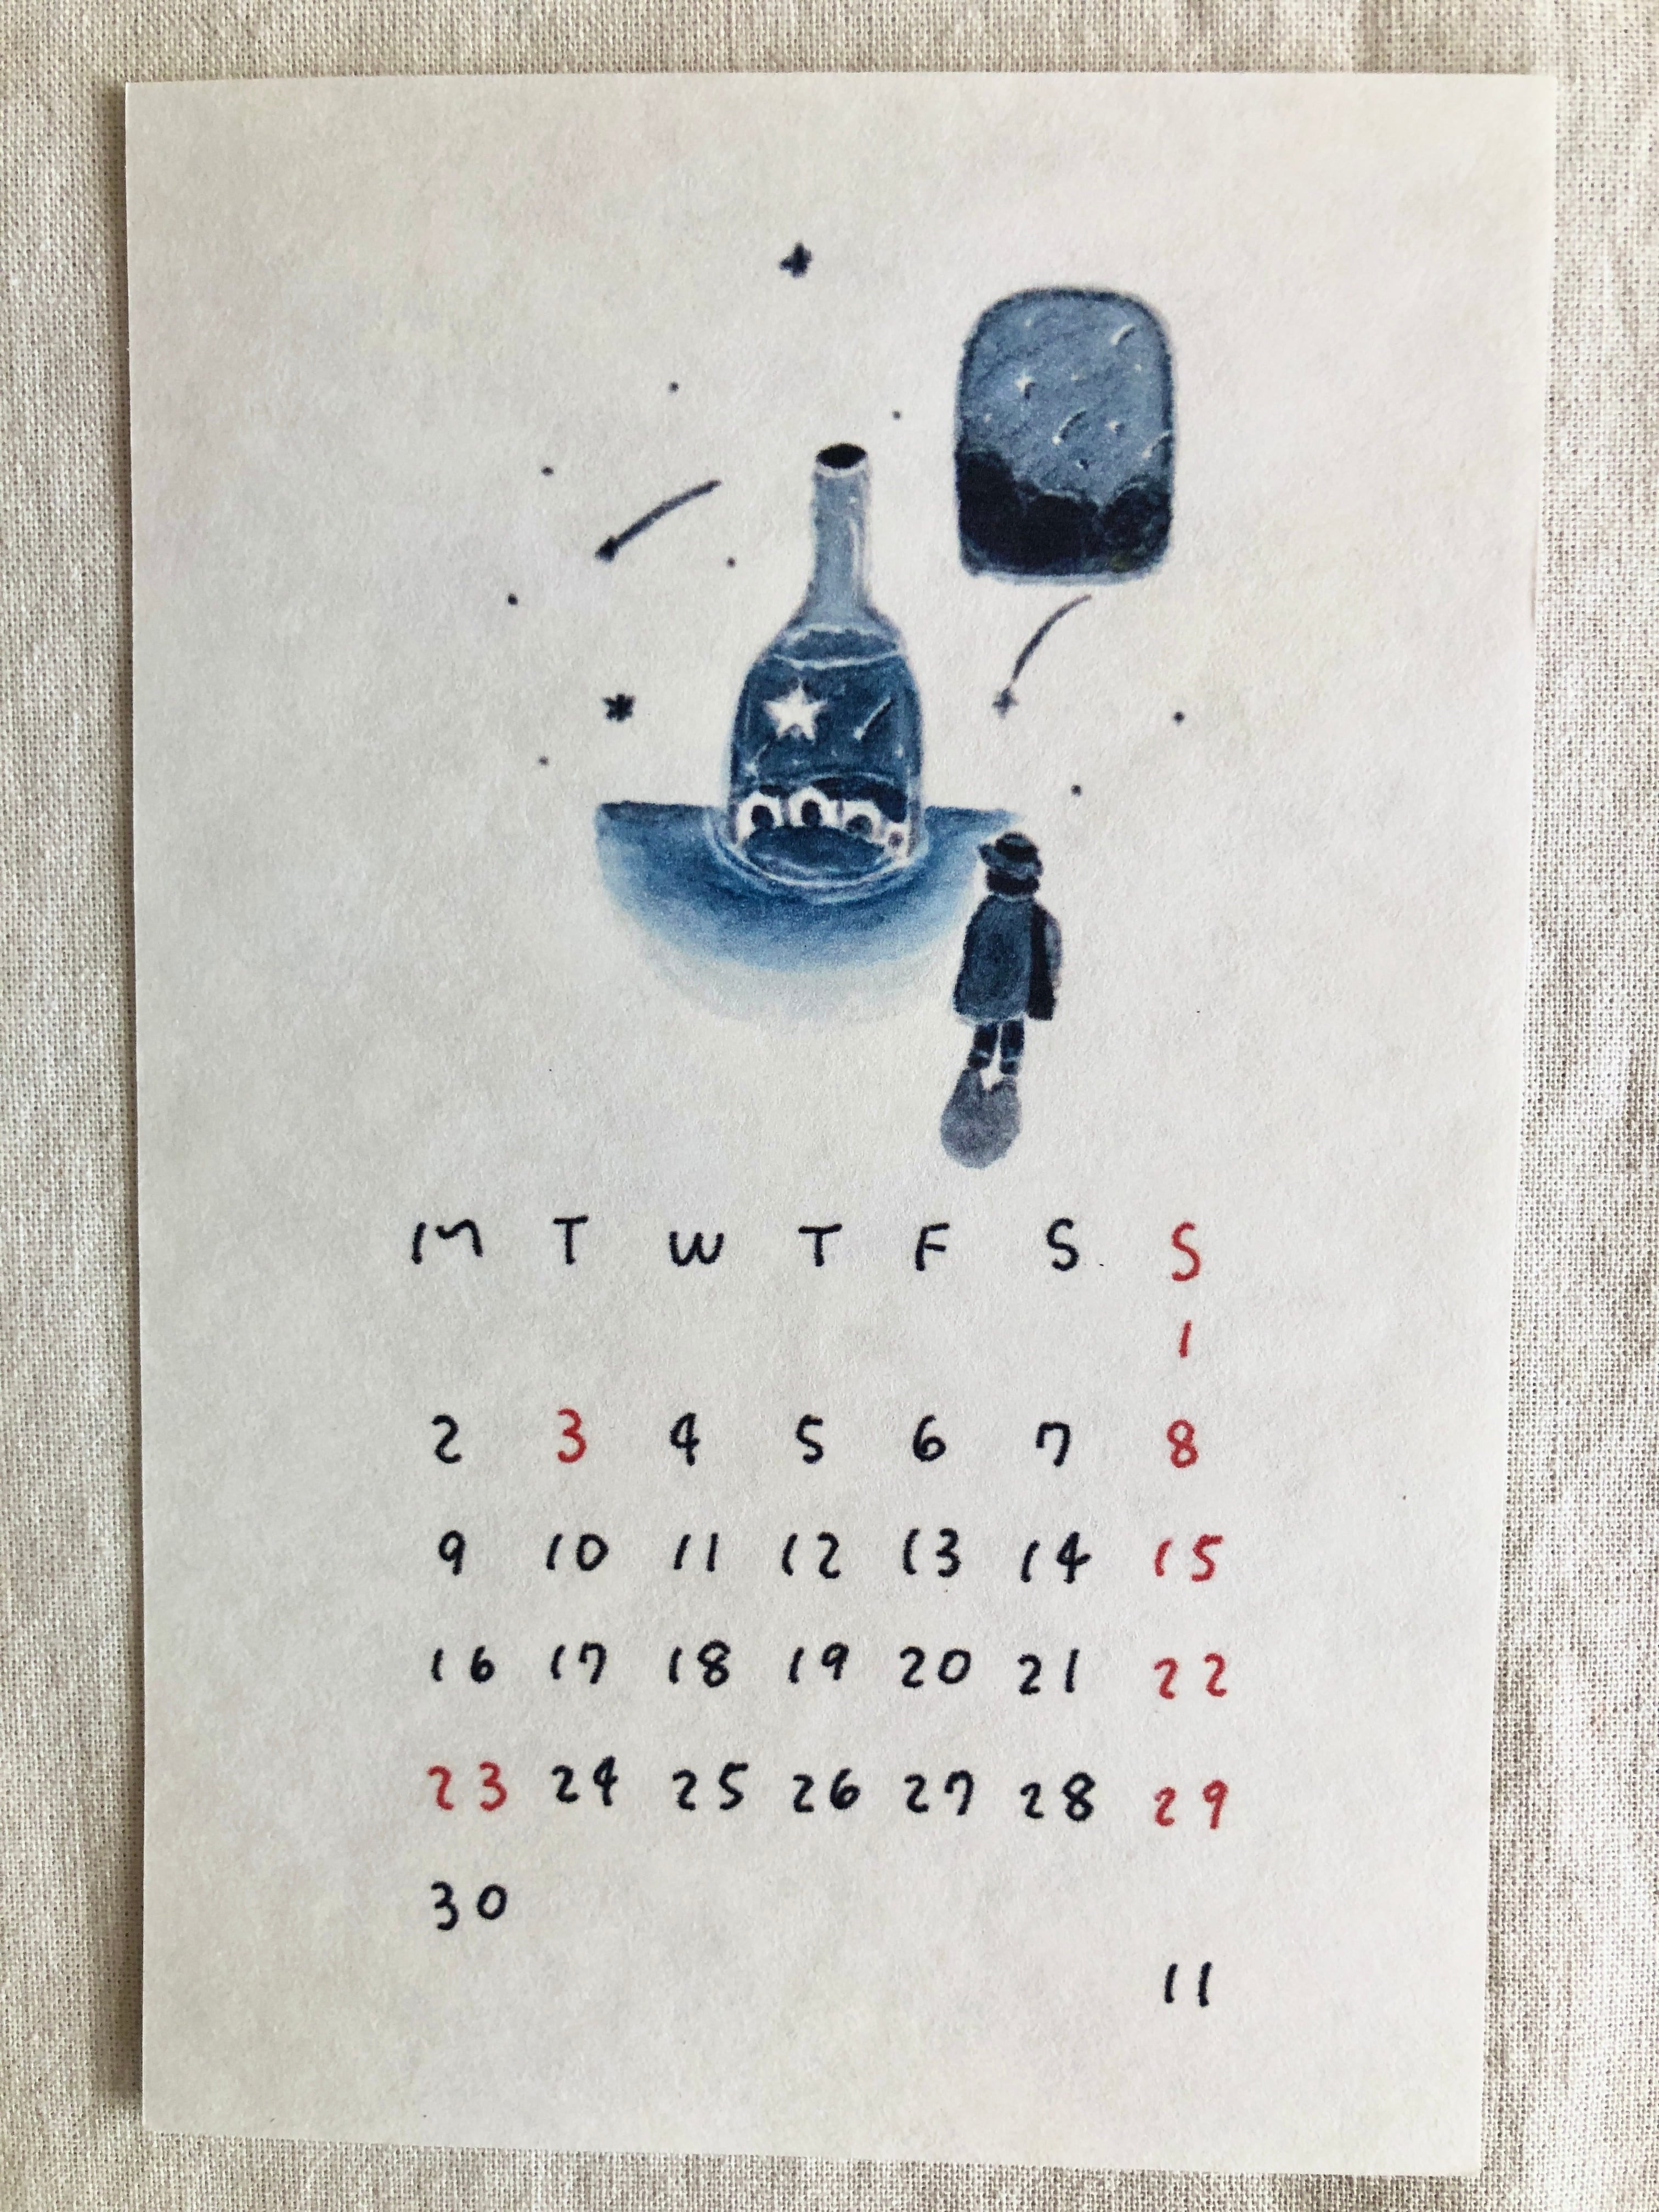 M T W T F S S
1
2 3 4 5 6 7 8
9 10 11 12 13 14 15
16 17 18 19 20 21 22
23 24 25 26 27 28 29
30
11